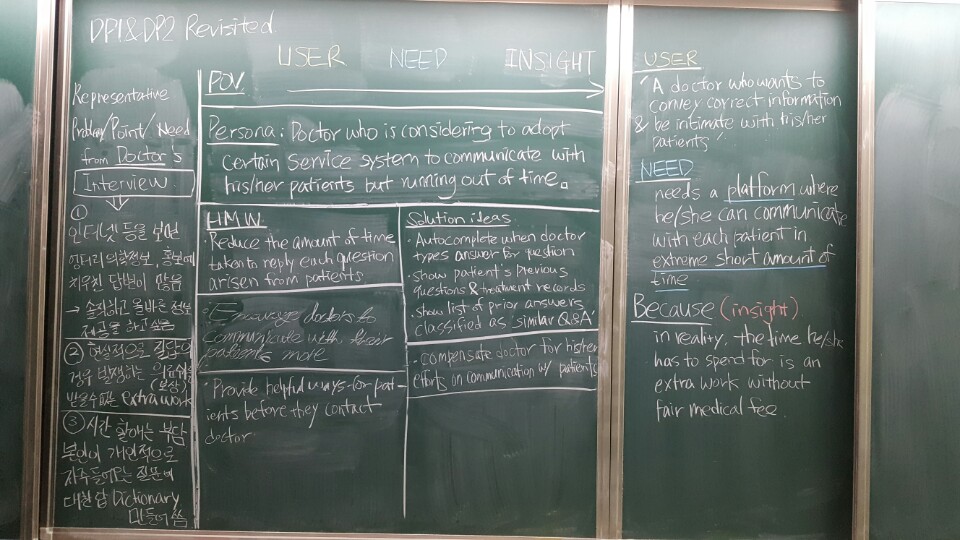 DP1&DP2 Revisited
USER NEED INSIGHT
Representative
Problem/Point/Need
from Doctor's
Interview
①
인터넷 등을 보면
엉터리 의학정보, 홍보에
치우친 답변이 많음
→ 솔직하고 올바른 정보
제공을 하고 싶음
② 현실적으로 질답의
경우 발생하는
(보상)
받을수없는 extra work
③ 시간 할애는 부담
본인이 개인적으로
자주 들어오는 질문에
대한 답 Dictionary
만들어 씀
POV
Persona: Doctor who is considering to adopt
certain service system to communicate with
his/her patients but running out of time.
HMW
·Reduce the amount of time
taken to reply each question
arisen from patients
·Encourage doctors to
communicate with their
patients more
·Provide helpful ways for pat-
ients before they contact
doctor
Solution ideas
·Autocomplete when doctor
types answer for question
·Show patient's previous
questions & treatment records
·Show list of prior answers
classified as 'similar Q&A'
·compensate doctor for his/her
efforts on communication w/ patients
USER
"A doctor who wants to
convey correct information
& be intimate with his/her
patients"
NEED
needs a platform where
he/she can communicate
with each patient in
extreme short amount of
time
Because (insight)
in reality, the time he/she
has to spend for is an
extra work without
fair medical fee.